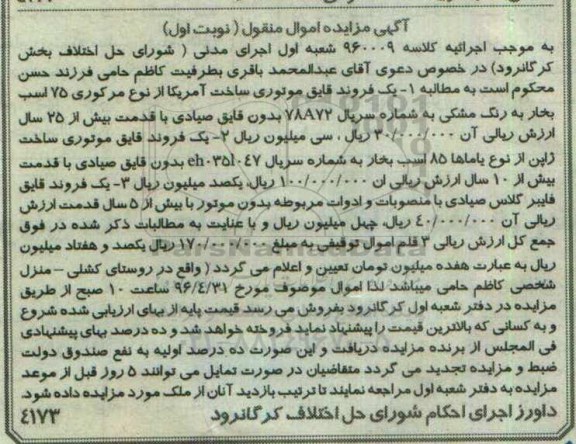 آگهی مزایده اموال منقول ( نوبت اول)
به موجب اجرائیه کلاسه ۹۶۰۰۰۹ شعبه اول اجرای مدنی ( شورای حل اختلاف بخش
کرگانرود) در خصوص دعوی آقای عبدالمحمد باقری بطرفیت کاظم حامی فرزند حسن
محکوم است به مطالبه ۱- یک فروند قایق موتوری ساخت آمریکا از نوع مرکوری ۷۵ اسب
بخار به رنگ مشکی به شماره سریال ۷۸۸۷۲ بدون قایق صیادی با قدمت بیش از ۲۵ سال
ارزش ریالی آن ۳۰/۰۰۰/۰۰۰ ریال ، سی میلیون ریال ۲- یک فروند قایق موتوری ساخت
ژاپن از نوع یاماها ۸۵ اسب بخار به شماره سریال eh۰۳۵l۰۴۷ بدون قایق صیادی با قدمت
بیش از ۱۰ سال ارزش ریالی ان ۱۰۰/۰۰۰/۰۰۰ ریال، یکصد میلیون ریال ۳- یک فروند قایق
فایبر گلاس صیادی با منصوبات و ادوات مربوطه بدون موتور با بیش از ۵ سال قدمت ارزش
ریالی آن ۴۰/۰۰۰/۰۰۰ ریال، چهل میلیون ریال و با عنایت به مطالبات ذکر شده در فوق
جمع کل ارزش ریالی ۳ قلم اموال توقیفی به مبلغ ۱۷۰/۰۰۰/۰۰۰ ریال یکصد و هفتاد میلیون
ریال به عبارت هفده میلیون تومان تعیین و اعلام می گردد ( واقع در روستای کشلی – منزل
شخصی کاظم حامی میباشد لذا اموال موصوف مورخ ۹۶/۴/۳۱ ساعت ۱۰ صبح از طریق
مزایده در دفتر شعبه اول کرگانرود بفروش می رسد قیمت پایه از بهای ارزیابی شده شروع
و به کسانی که بالاترین قیمت را پیشنهاد نماید فروخته خواهد شد و ده درصد بهای پیشنهادی
فی المجلس از برنده مزایده دریافت و این صورت ده درصد اولیه به نفع صندوق دولت
ضبط و مزایده تجدید می گردد متقاضیان در صورت تمایل می توانند ۵ روز قبل از موعد
مزایده به دفتر شعبه اول مراجعه نمایند تا ترتیب بازدید آنان از ملک مورد مزایده داده شود.
داورز اجرای احکام شورای حل اختلاف کرگانرود
۴۱۷۳